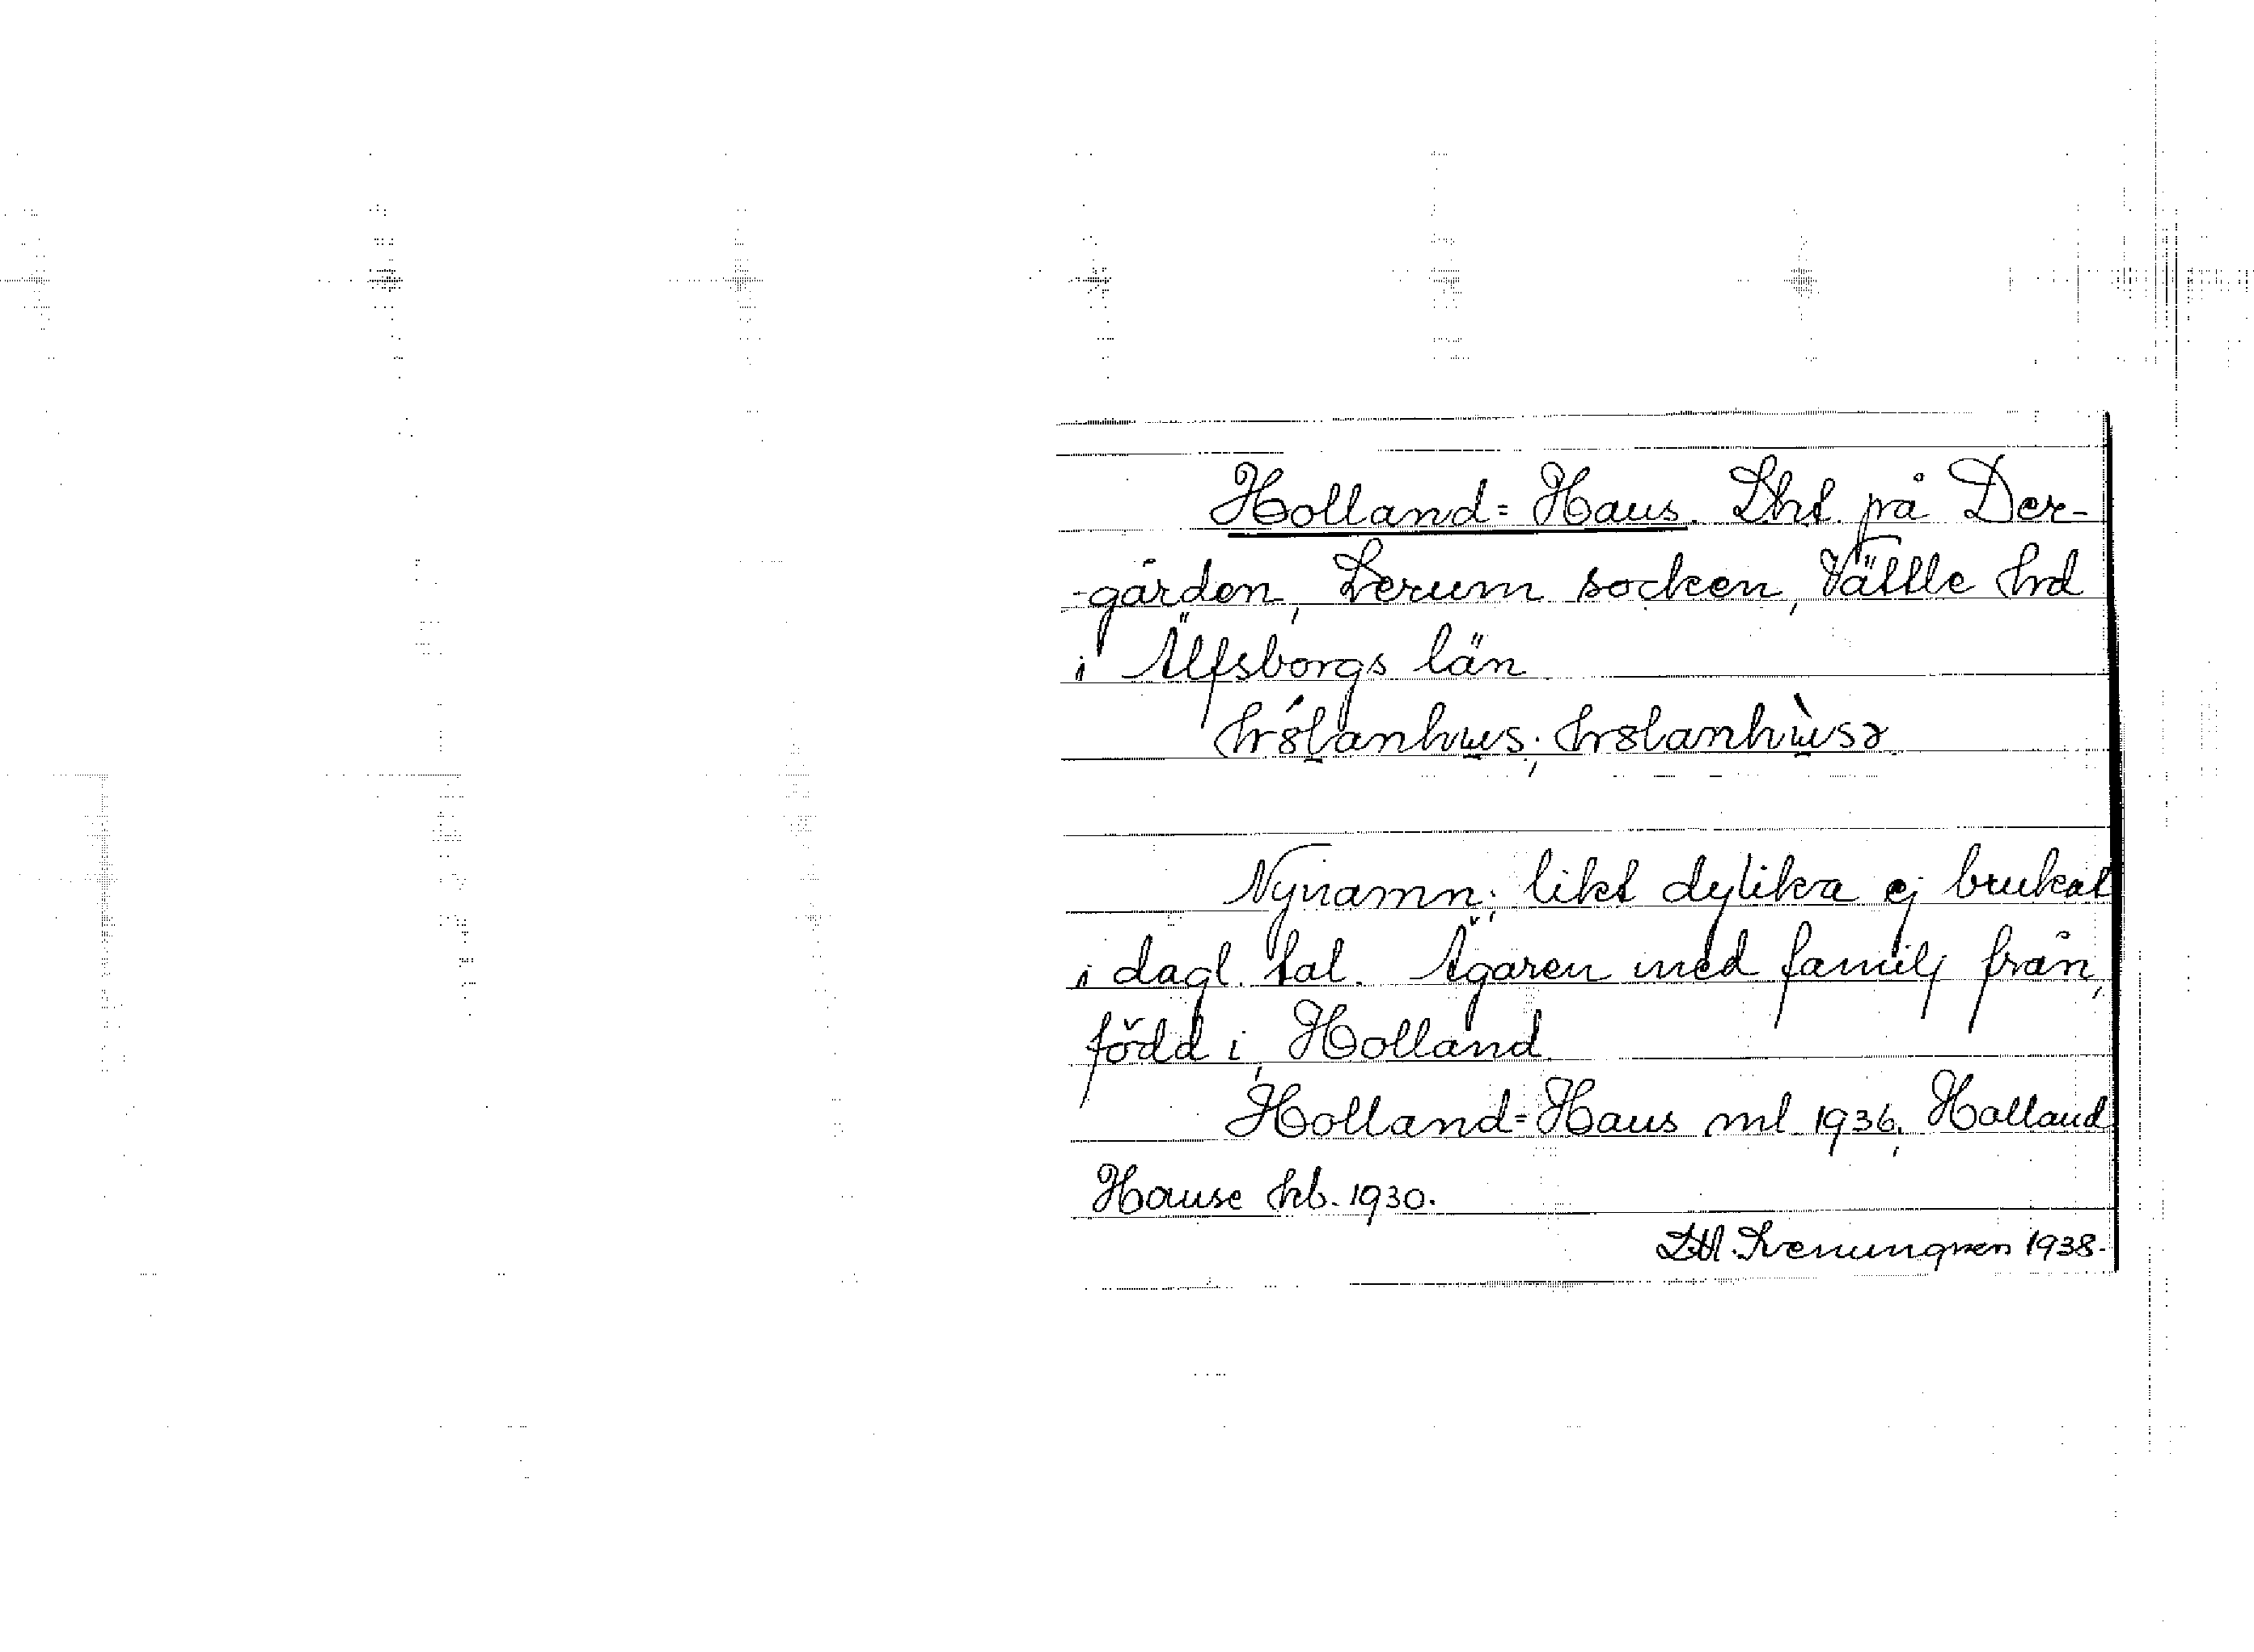 Holland=Haus. Lht. på Der-
-gården, Lerum socken, Vättle hd
i Älfsborgs län.
Nynamn; likt dylika ej brukat
i dagl. tal. Ägaren med familj från,
född i, Holland.
Holland=Haus ml 1936, Holland
Hause hb. 1930.
1938.